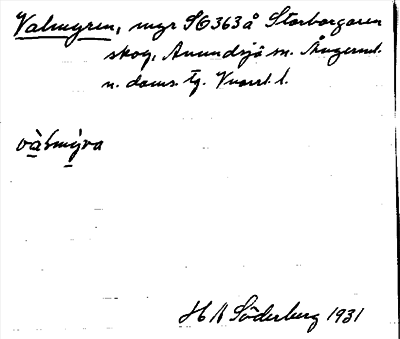 Valmyren, myr SÖ 363 å Storborgaren
skog, Anundsjö sn. Ångerml.
n. doms. tg. Vnorrl. l.
vàlmýra
H A Söderberg 1931